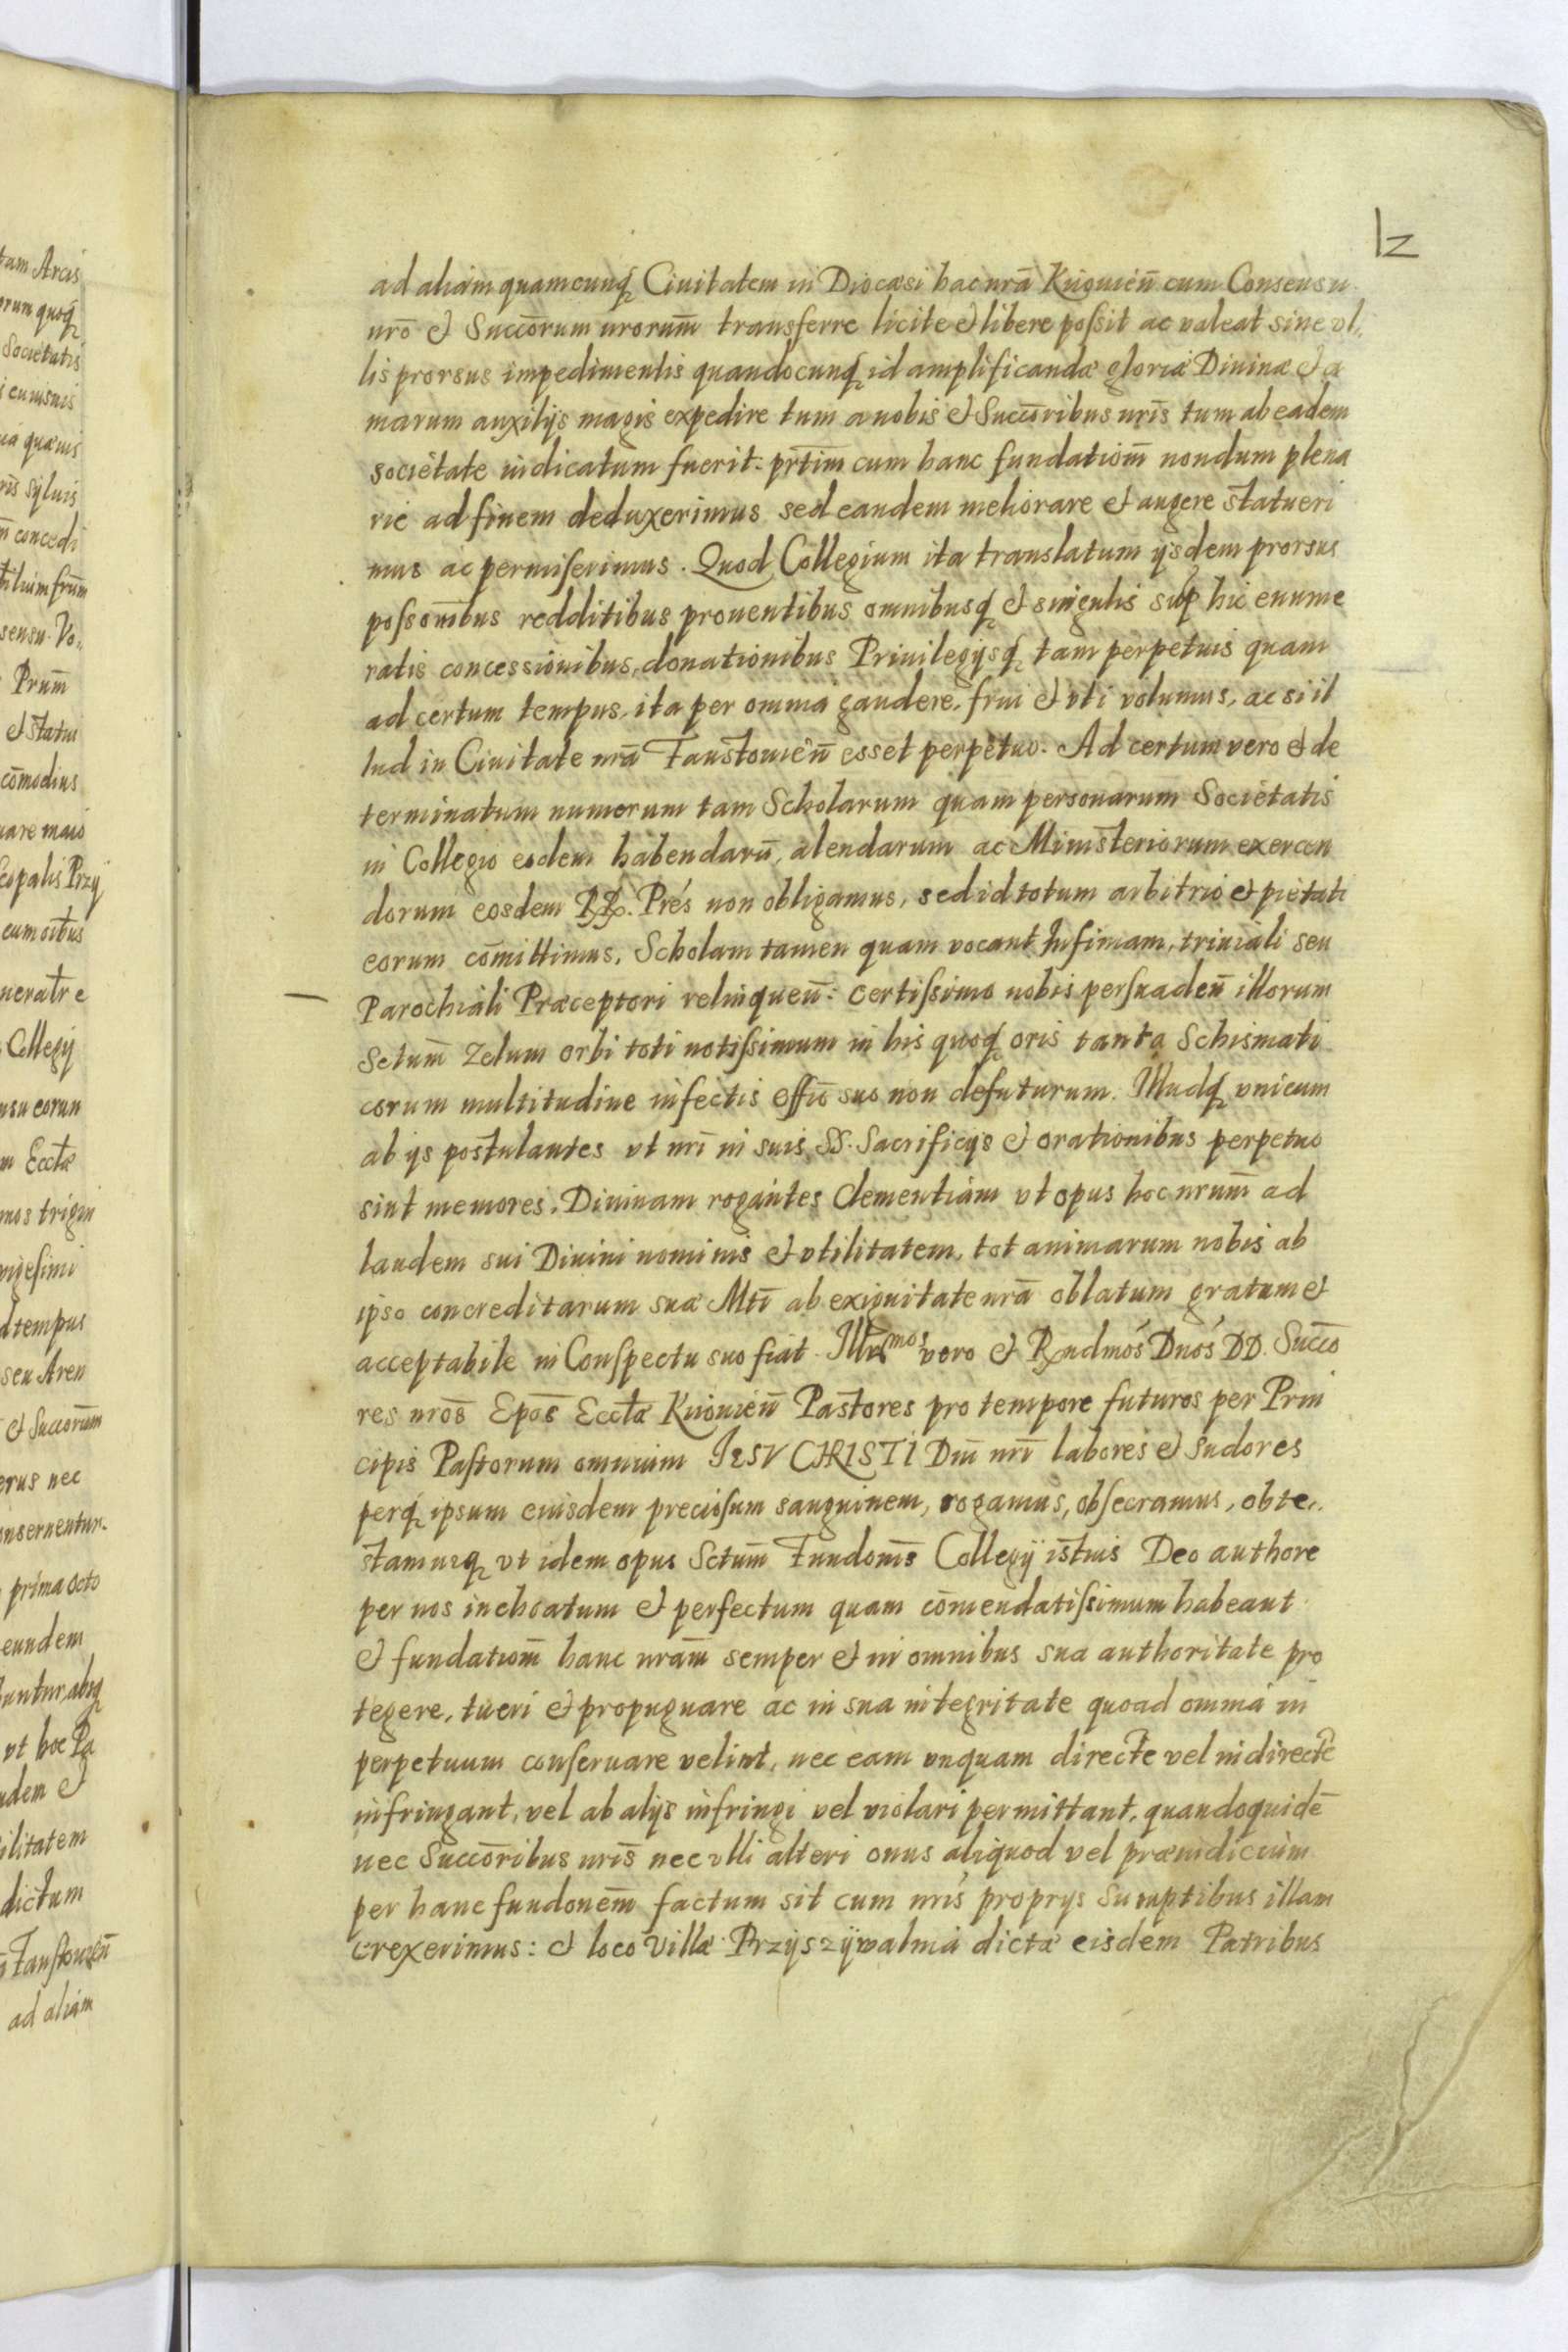 12
ad aliam quamcunq́ Ciuitatem in Diocæsi hac nrã Kiiouień cum Consensu
nrõ et Succõrum nrorum̃ transferre licite et libere poſsit ac valeat sine vl„
lis prorsus impedimentis quandocunq́ id amplificandæ gloriæ Diuinæ et a
marum auxilijs magis expedire tum a nobis et Succõribus nrĩs tum ab eadem
societate iudicatum fuerit. prt̃im cum hanc fundatiom̃ nondum plena
rie ad finem deduxerimus sed eandem meliorare et augere statueri
mus ac permiſerimus. Quod Collegium ita translatum ijsdem prorsus
poſsom̃ibus redditibus prouentibus omnibusq́ et singulis sup̃ hic enume
ratis concessionibus, donationibus Priuilegijsq́ tam perpetuis quam
ad certum tempus, ita per omnia gaudere, frui et vti volumus, ac si il
lud in Ciuitate nrã Faustouień esset perpetuo. Ad certum vero et de
terminatum numerum tam Scholarum quam personarum Societatis
in Collegio eodem habendarũ, alendarum ac Ministeriorum exercen
dorum eosdem RR. Prés non obligamus, sed id totum arbitrio et pietati
eorum cõmittimus. Scholam tamen quam vocant Infimam, triuiali seu
Parochiali Præceptori relinqueñ: certiſsimo nobis persuadeñ illorum
Sctum̃ zelum orbi toti notiſsimum in his quoq́ oris tanta Schismati
corum multitudine infectis offiõ suo non defuturum. Illudq́ vnicum
ab ijs postulantes vt nrĩ in suis SS. Sacrificijs et orationibus perpetuo
sint memores. Diuinam rogantes Clementiam vt opus hoc nrum̃ ad
laudem sui Diuini nominis et vtilitatem, tot animarum nobis ab
ipso concreditarum suæ Mtĩ ab exiguitate nrã oblatum gratum et
acceptabile in Conspectu suo fiat. Illrsmos vero et Rxndmós Dnós DD. Succõ
res nrõs Epõs Ecctæ̃ Kiiouień Pastores pro tempore futuros per Prin
cipis Paſtorum omnium IESV CHRISTI Dnĩ nrĩ labores et sudores
perq́ ipsum eiusdem precioſum sanguinem, rogamus, obſecramus, obte„
stamurq́ vt idem opus Sctum̃ Fundonis̃ Collegij istius Deo authore
per nos inchoatum et perfectum quam cõmendatiſsimum habeant
et fundatiom̃ hanc nram̃ semper et in omnibus sua authoritate pro
tegere, tueri et propugnare ac in sua integritate quoad omnia in
perpetuum conſeruare velint, nec eam vnquam directe vel indirecte
infringant, vel ab alijs infringi vel violari permittant, quandoquidẽ
nec Succõribus nrĩs nec vlli alteri onus aliquod vel præiudicium
per hanc fundonem̃ factum sit cum nrĩs proprijs Sumptibus illam
erexerimus: et loco Villæ Przÿszÿwalnia dictæ eisdem Patribus